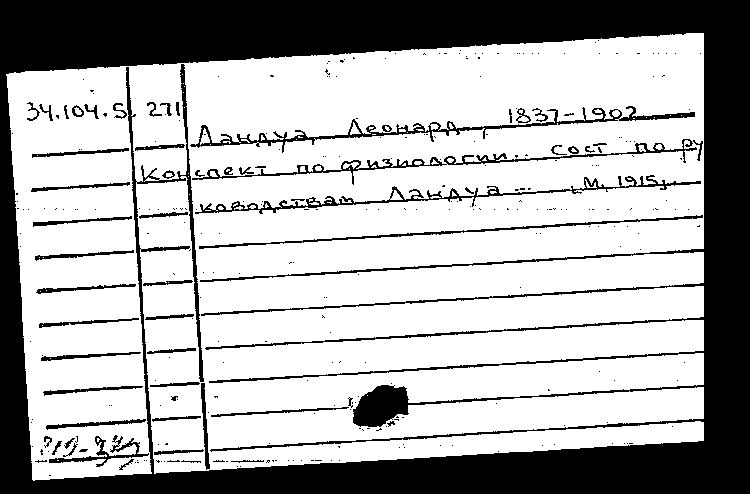 34.104.5. 271
Ландуа, Леонард, 1837-1902
Конспект по физиологии.. сост по ру
ководствам Ландуа ... М, 1915,